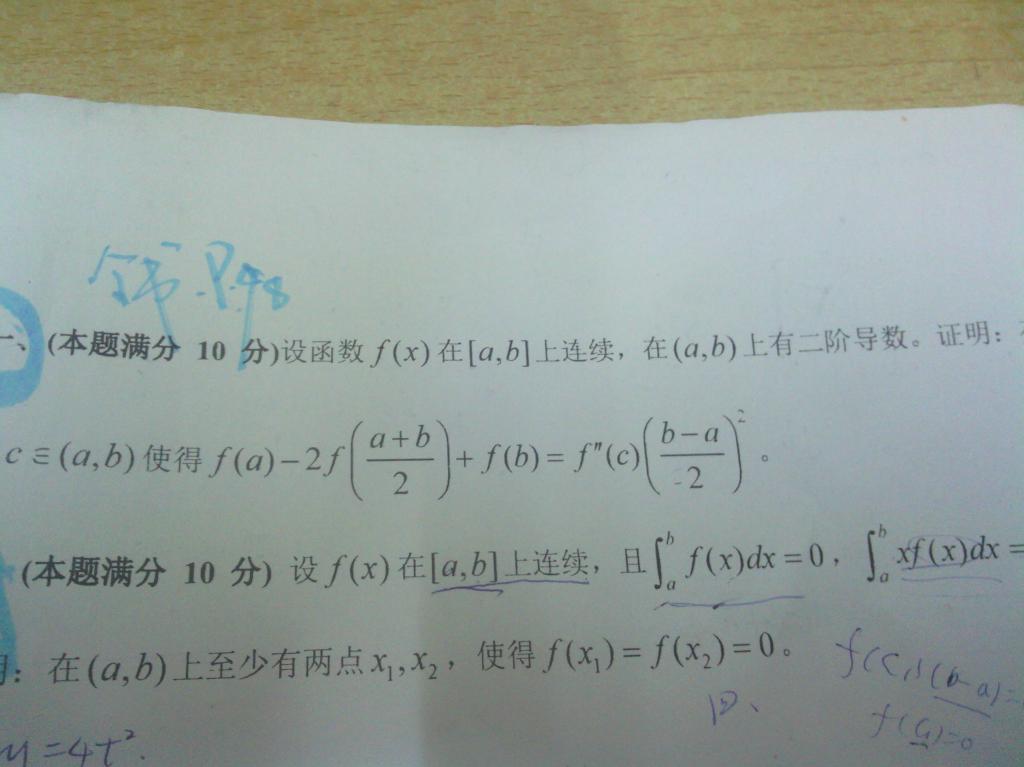 P.48
一、(本题满分 10 分)设函数 f(x) 在 [a,b] 上连续，在 (a,b) 上有二阶导数。证明：
c∈(a,b) 使得 f(a)−2f((a+b)/2)+f(b)=f″(c)((b−a)/2)²。
(本题满分 10 分) 设 f(x) 在 [a,b] 上连续，且 ∫_a^b f(x)dx=0，∫_a^b xf(x)dx=
明：在 (a,b) 上至少有两点 x₁,x₂，使得 f(x₁)=f(x₂)=0。
f(c)(b-a)=
f(c)=0
=4t².